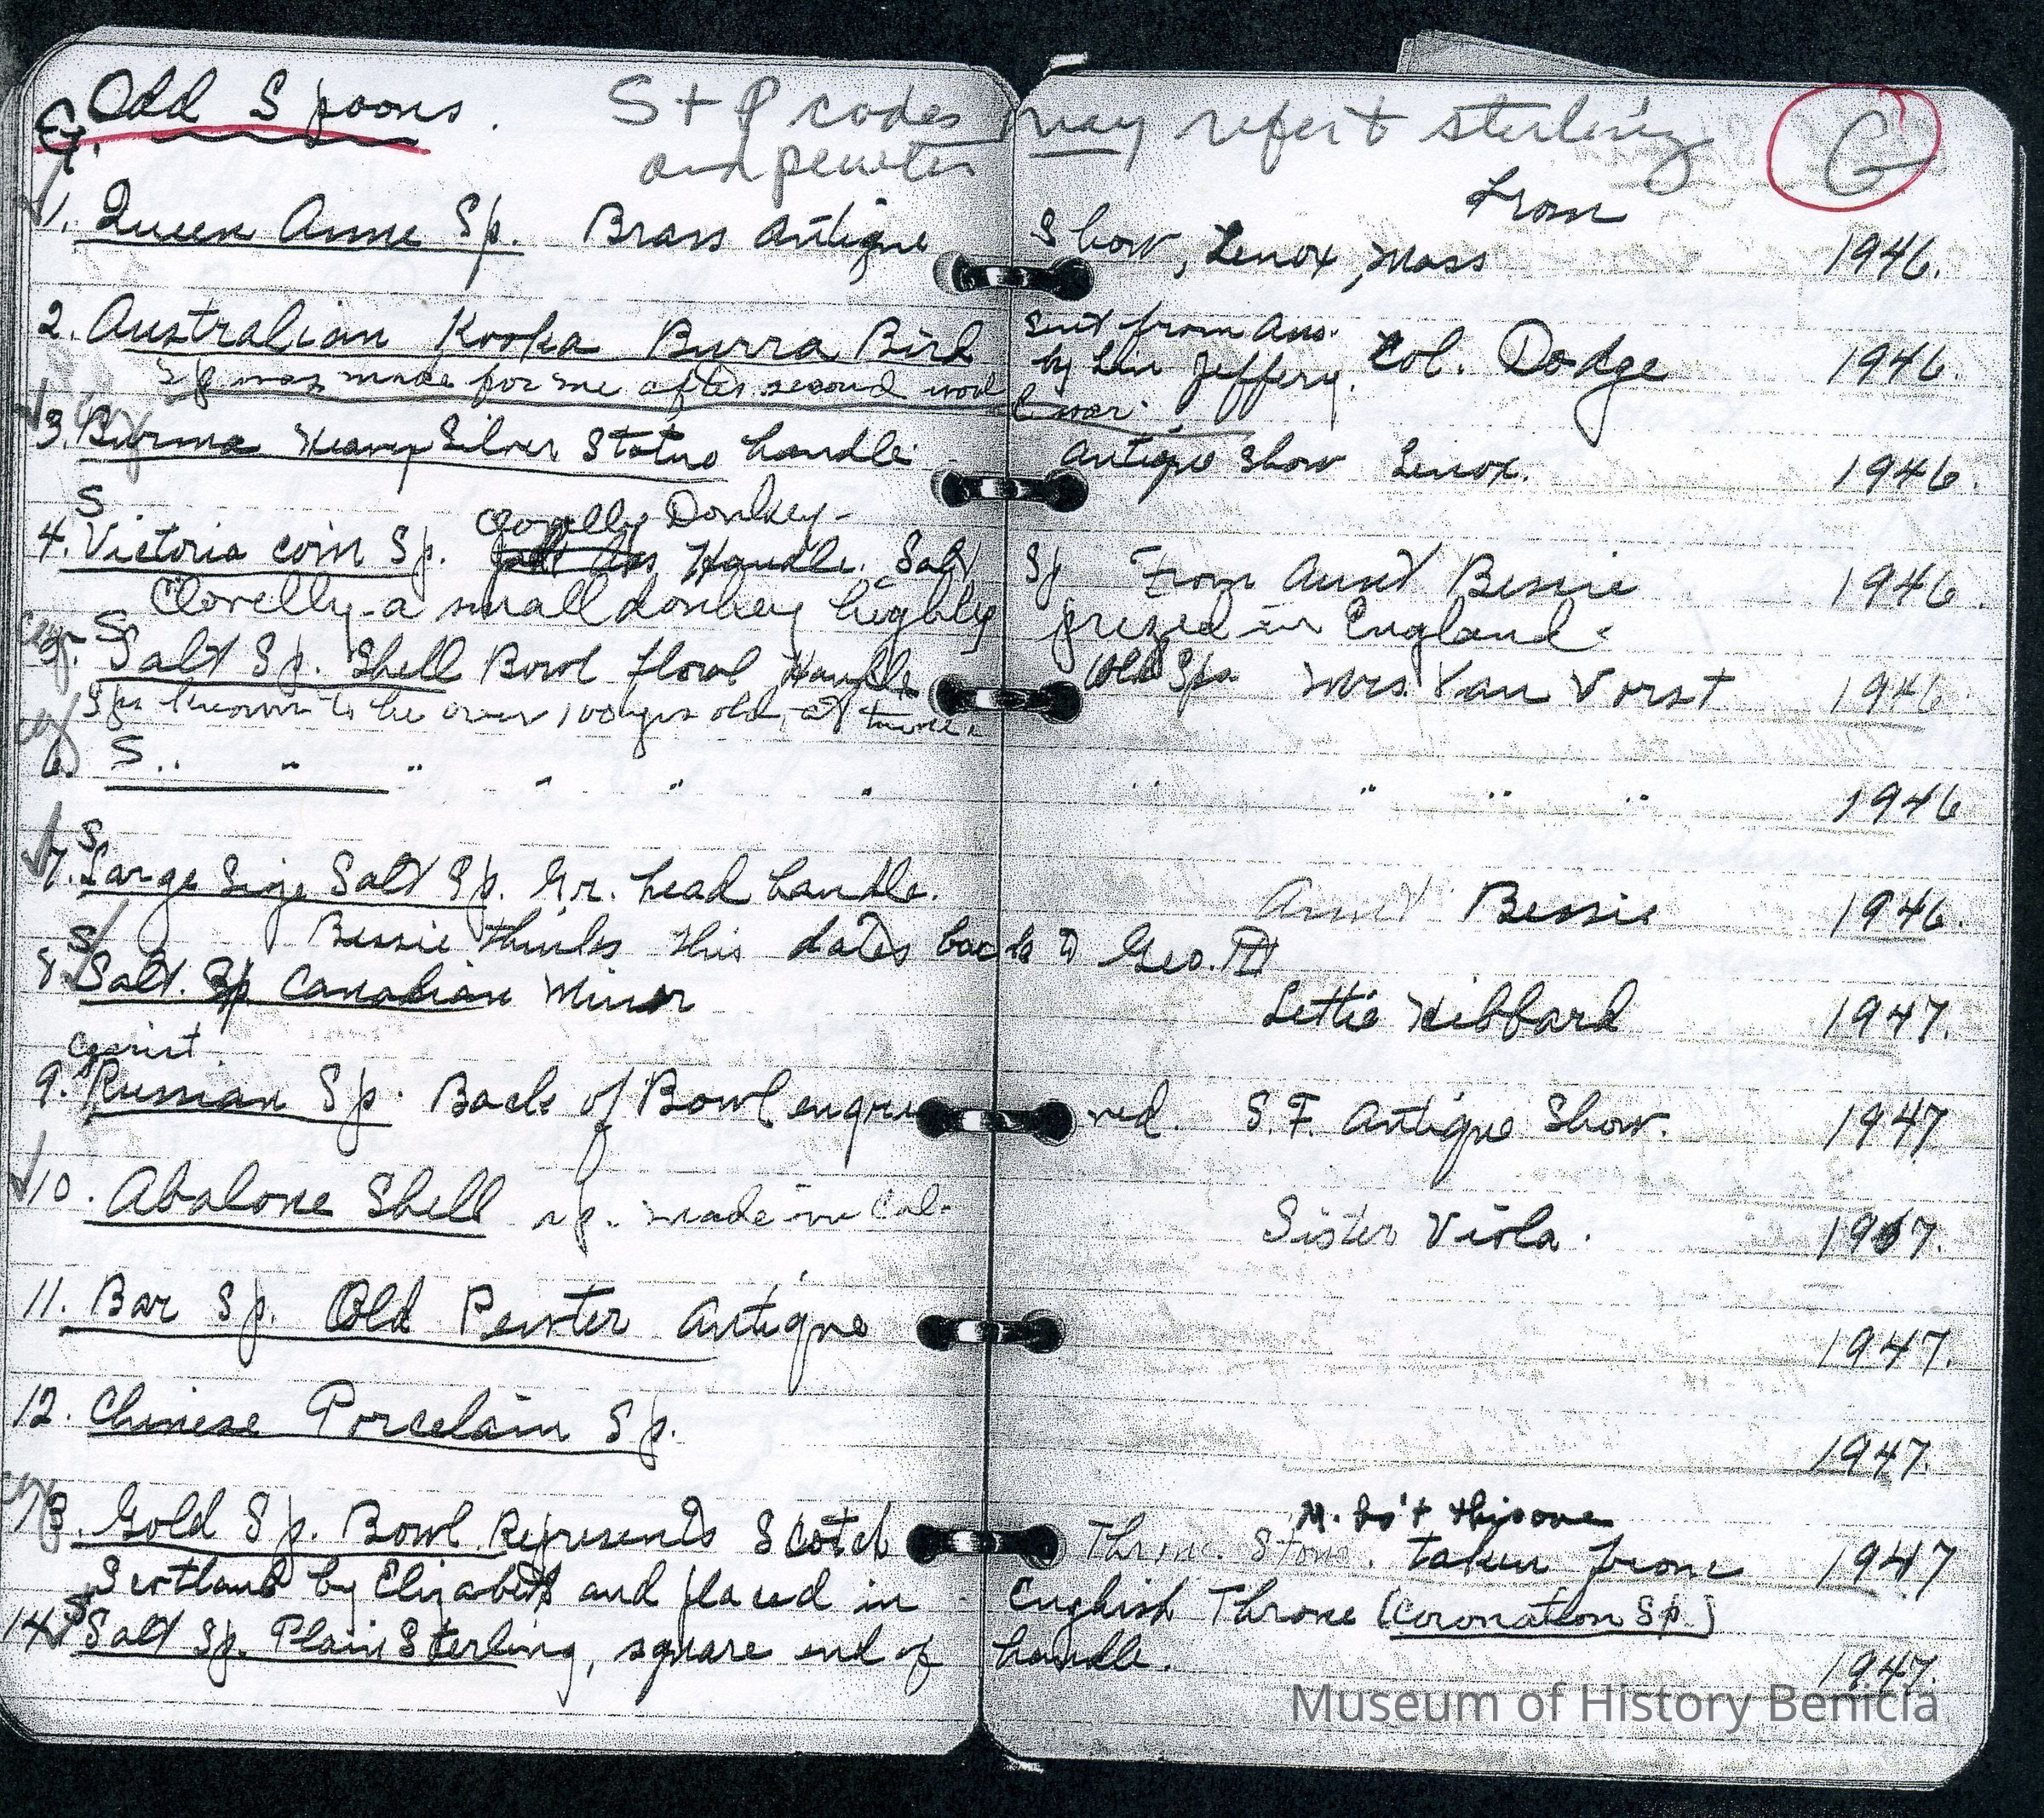 G. Odd Spoons. S + P codes may refer to sterling G
and pewter
From
1. Queen Anne Sp. Brass Antique Show, Lenox, Mass 1946.
2. Australian Kooka Burra Bird sent from Aus. by Jeffery. Col. Dodge 1946.
Sp was made for me after second world war.
3. Burma Heavy Silver Statue handle. Antique Show Lenox. 1946.
S
Clovelly Donkey-
4. Victoria coin Sp. Handle. Salt Sp From Aunt Bessie 1946.
Clovelly-a small donkey highly prized in England.
S
5. Salt Sp. Shell Bowl flowl Handle Old Sps Mrs. Van Vorst 1946
Sps known to be over 100 yrs old, at
6. S " " " " " " " " " " 1946
S
7. Large Size Salt Sp. Gr. head handle. Aunt Bessie 1946.
Bessie thinks this dates back to Geo. III
S
8. Salt. Sp Canadian Minor Lettie Hibbard 1947.
9. Russian Sp. Back of Bowl engraved. S.F. Antique Show. 1947
10. Abalone Shell sp. made in Cal. Sister Viola. 1947.
11. Bar Sp. Old Pewter Antique 1947.
12. Chinese Porcelain Sp. 1947.
M. Is't this one
13. Gold Sp. Bowl Represents Scotch Throne Stone. taken from 1947
Scotland by Elizabeth and placed in English Throne (Coronation Sp.)
S
14. Salt Sp. Plain Sterling, square end of handle. 1947.
Museum of History Benicia